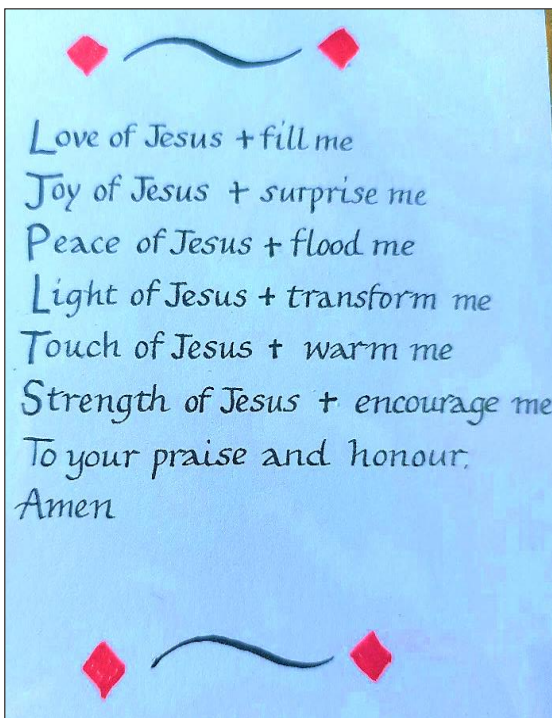 Love of Jesus + fill me
Joy of Jesus + surprise me
Peace of Jesus + flood me
Light of Jesus + transform me
Touch of Jesus + warm me
Strength of Jesus + encourage me
To your praise and honour.
Amen